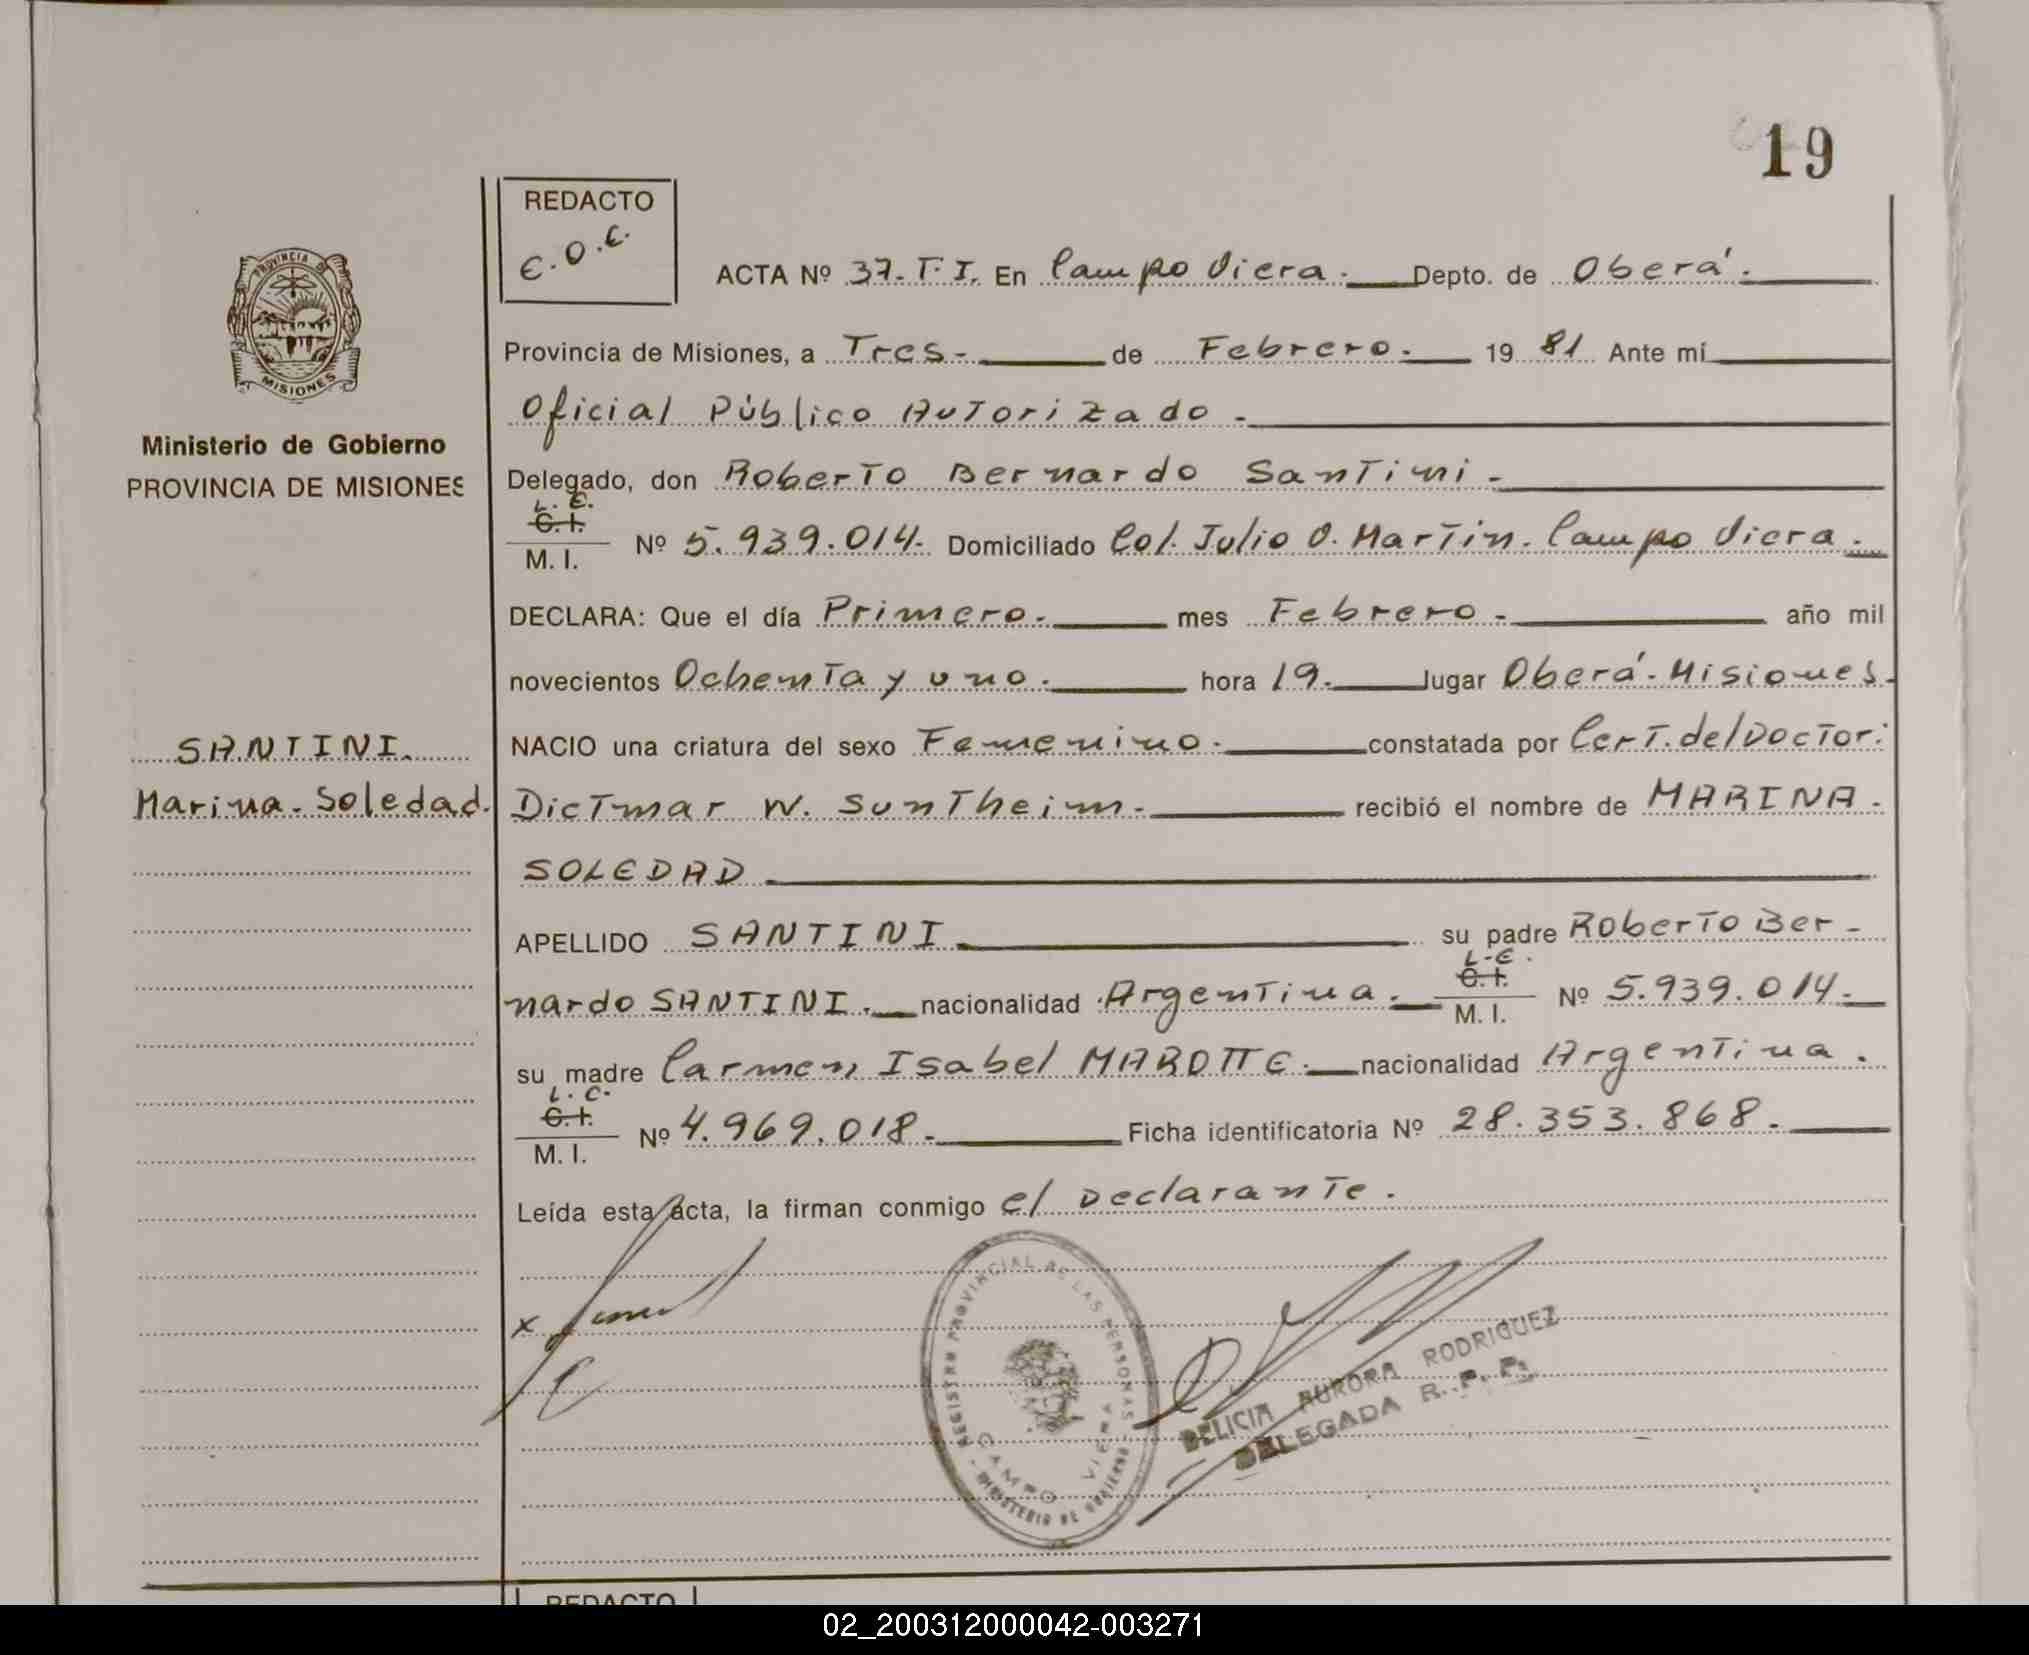 19
REDACTO
E.O.E.
ACTA Nº 37.T.I. En Campo Viera. Depto. de Oberá.
Provincia de Misiones, a Tres.- de Febrero. 1981 Ante mí
Oficial Público Autorizado.-
Delegado, don Roberto Bernardo Santini.-
L.E.
C.I.
M.I. Nº 5.939.014. Domiciliado Col. Julio U. Martin. Campo Viera.
DECLARA: Que el día Primero. mes Febrero.- año mil
novecientos Ochenta y uno. hora 19. lugar Oberá. Misiones.
NACIO una criatura del sexo Femenino. constatada por Cert. del Doctor:
Dietmar W. Suntheim. recibió el nombre de MARINA.
SOLEDAD
APELLIDO SANTINI su padre Roberto Ber-
L.E.
C.I.
nardo SANTINI. nacionalidad Argentina. M.I. Nº 5.939.014.
su madre Carmen Isabel MAROTTE. nacionalidad Argentina.
L.C.
C.I.
M.I. Nº 4.969.018. Ficha identificatoria Nº 28.353.868.
Leída esta acta, la firman conmigo el Declarante.
PROVINCIA DE
MISIONES
Ministerio de Gobierno
PROVINCIA DE MISIONES
SANTINI.
Marina. Soledad.
x
REGISTRO PROVINCIAL DE LAS PERSONAS
CAMPO VIERA
MINISTERIO DE GOBIERNO
DELICIA AURORA RODRIGUEZ
DELEGADA R.P.P.
REDACTO
02_200312000042-003271